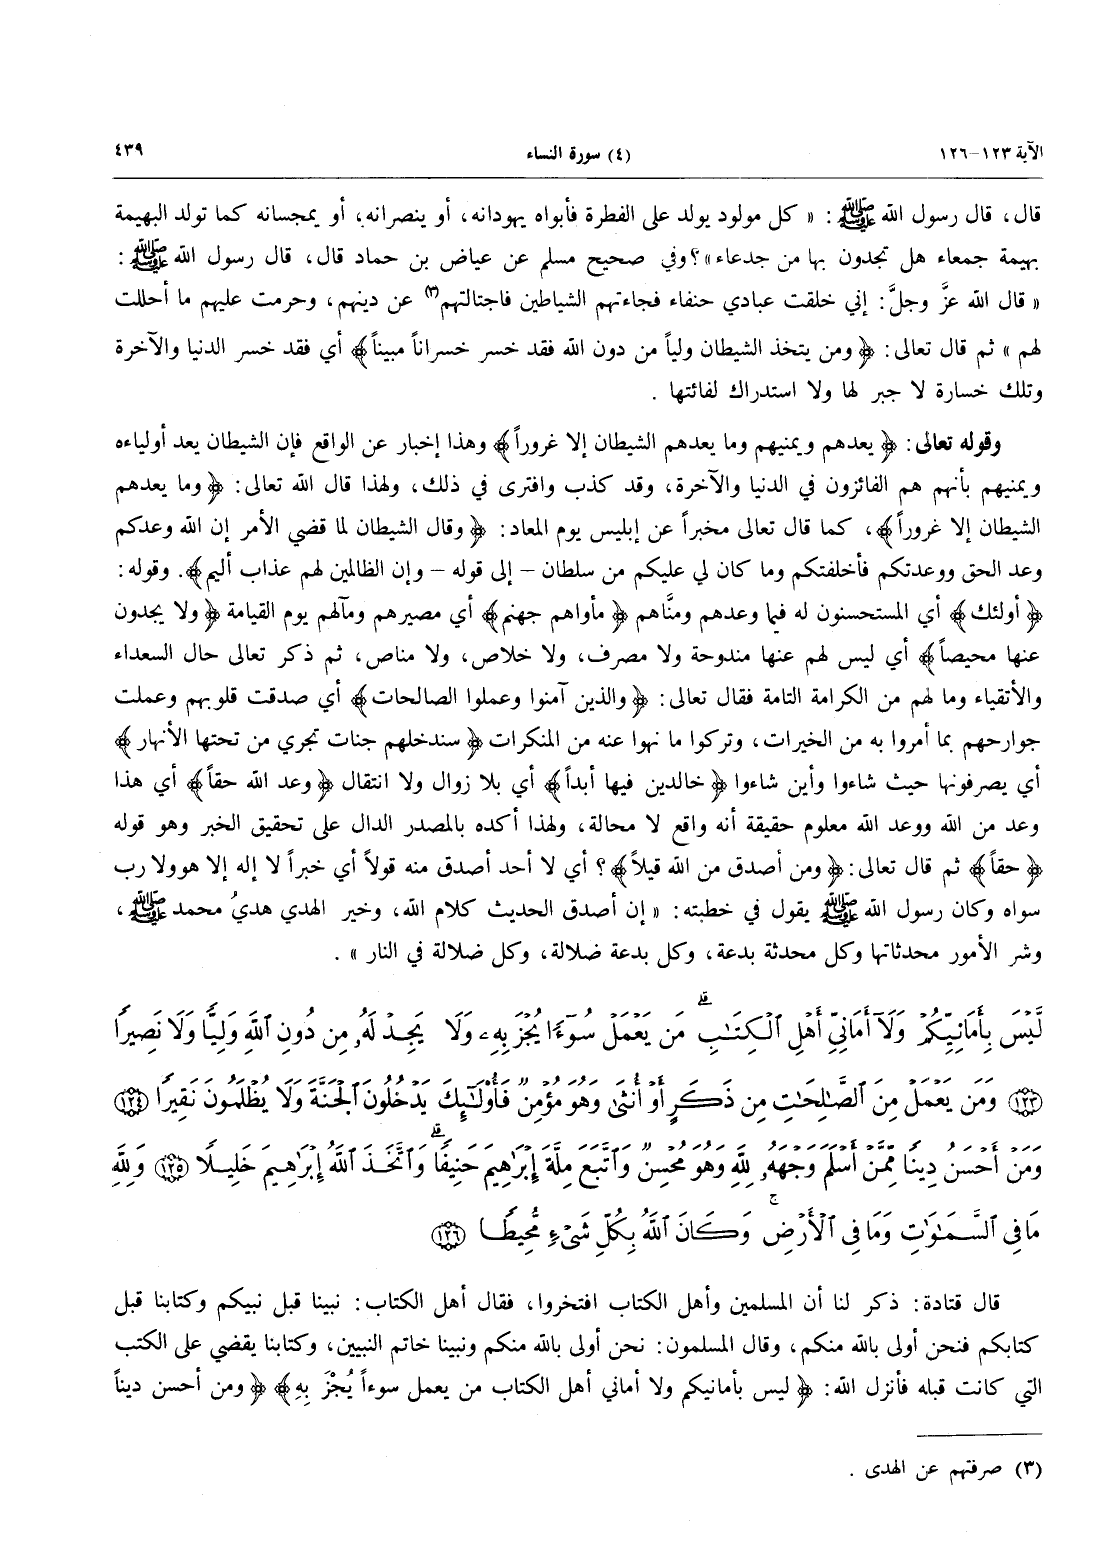 الآية ١٢٣-١٢٦ (٤) سورة النساء ٤٣٩
قال، قال رسول الله ﷺ: « كل مولود يولد على الفطرة فأبواه يهودانه، أو ينصرانه، أو يمجسانه كما تولد البهيمة
بهيمة جمعاء هل تجدون بها من جدعاء»؟ وفي صحيح مسلم عن عياض بن حماد قال، قال رسول الله ﷺ:
« قال الله عزَّ وجلَّ: إني خلقت عبادي حنفاء فجاءتهم الشياطين فاجتالتهم(٣) عن دينهم، وحرمت عليهم ما أحللت
لهم » ثم قال تعالى: ﴿ ومن يتخذ الشيطان ولياً من دون الله فقد خسر خسراناً مبيناً﴾ أي فقد خسر الدنيا والآخرة
وتلك خسارة لا جبر لها ولا استدراك لفائتها .
وقوله تعالى: ﴿ يعدهم ويمنيهم وما يعدهم الشيطان إلا غروراً﴾ وهذا إخبار عن الواقع فإن الشيطان يعد أولياءه
ويمنيهم بأنهم هم الفائزون في الدنيا والآخرة، وقد كذب وافترى في ذلك، ولهذا قال الله تعالى: ﴿ وما يعدهم
الشيطان إلا غروراً﴾، كما قال تعالى مخبراً عن إبليس يوم المعاد: ﴿ وقال الشيطان لما قضي الأمر إن الله وعدكم
وعد الحق ووعدتكم فأخلفتكم وما كان لي عليكم من سلطان - إلى قوله - وإن الظالمين لهم عذاب أليم﴾. وقوله:
﴿ أولئك﴾ أي المستحسنون له فيما وعدهم ومنَّاهم ﴿ مأواهم جهنم﴾ أي مصيرهم ومآلهم يوم القيامة ﴿ ولا يجدون
عنها محيصاً﴾ أي ليس لهم عنها مندوحة ولا مصرف، ولا خلاص، ولا مناص، ثم ذكر تعالى حال السعداء
والأتقياء وما لهم من الكرامة التامة فقال تعالى: ﴿ والذين آمنوا وعملوا الصالحات﴾ أي صدقت قلوبهم وعملت
جوارحهم بما أمروا به من الخيرات، وتركوا ما نهوا عنه من المنكرات ﴿ سندخلهم جنات تجري من تحتها الأنهار ﴾
أي يصرفونها حيث شاءوا وأين شاءوا ﴿ خالدين فيها أبداً﴾ أي بلا زوال ولا انتقال ﴿ وعد الله حقاً﴾ أي هذا
وعد من الله ووعد الله معلوم حقيقة أنه واقع لا محالة، ولهذا أكده بالمصدر الدال على تحقيق الخبر وهو قوله
﴿ حقاً﴾ ثم قال تعالى: ﴿ ومن أصدق من الله قيلاً﴾؟ أي لا أحد أصدق منه قولاً أي خبراً لا إله إلا هو ولا رب
سواه وكان رسول الله ﷺ يقول في خطبته: « إن أصدق الحديث كلام الله، وخير الهدي هديُ محمد ﷺ،
وشر الأمور محدثاتها وكل محدثة بدعة، وكل بدعة ضلالة، وكل ضلالة في النار » .
لَّيْسَ بِأَمَانِيِّكُمْ وَلَآ أَمَانِيِّ أَهْلِ ٱلْكِتَـٰبِ ۗ مَن يَعْمَلْ سُوٓءًا يُجْزَ بِهِۦ وَلَا يَجِدْ لَهُۥ مِن دُونِ ٱللَّهِ وَلِيًّا وَلَا نَصِيرًا
(١٢٣) وَمَن يَعْمَلْ مِنَ ٱلصَّـٰلِحَـٰتِ مِن ذَكَرٍ أَوْ أُنثَىٰ وَهُوَ مُؤْمِنٌ فَأُوْلَـٰٓئِكَ يَدْخُلُونَ ٱلْجَنَّةَ وَلَا يُظْلَمُونَ نَقِيرًا (١٢٤)
وَمَنْ أَحْسَنُ دِينًا مِّمَّنْ أَسْلَمَ وَجْهَهُۥ لِلَّهِ وَهُوَ مُحْسِنٌ وَٱتَّبَعَ مِلَّةَ إِبْرَٰهِيمَ حَنِيفًا ۗ وَٱتَّخَذَ ٱللَّهُ إِبْرَٰهِيمَ خَلِيلًا (١٢٥) وَلِلَّهِ
مَا فِي ٱلسَّمَـٰوَٰتِ وَمَا فِي ٱلْأَرْضِ ۚ وَكَانَ ٱللَّهُ بِكُلِّ شَيْءٍ مُّحِيطًا (١٢٦)
قال قتادة: ذكر لنا أن المسلمين وأهل الكتاب افتخروا، فقال أهل الكتاب: نبينا قبل نبيكم وكتابنا قبل
كتابكم فنحن أولى بالله منكم، وقال المسلمون: نحن أولى بالله منكم ونبينا خاتم النبيين، وكتابنا يقضي على الكتب
التي كانت قبله فأنزل الله: ﴿ ليس بأمانيكم ولا أماني أهل الكتاب من يعمل سوءاً يُجْزَ بِهِ﴾ ﴿ ومن أحسن ديناً
(٣) صرفتهم عن الهدى .